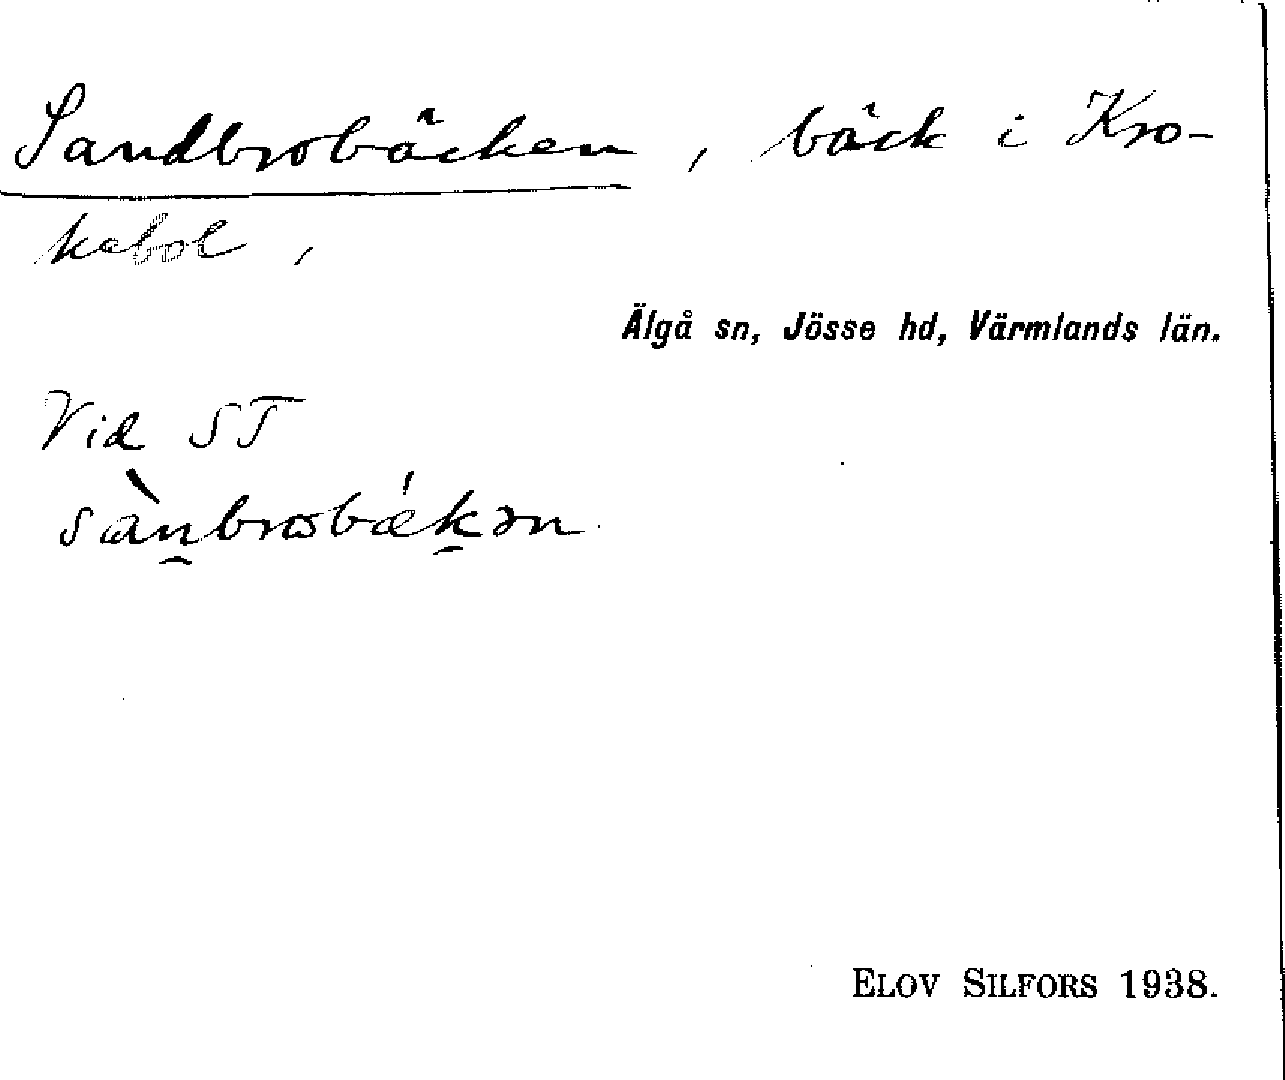 Sandbrobäcken, bäck i Kro-
kebol,
Älgå sn, Jösse hd, Värmlands län.
Vid ST
ELOV SILFORS 1938.